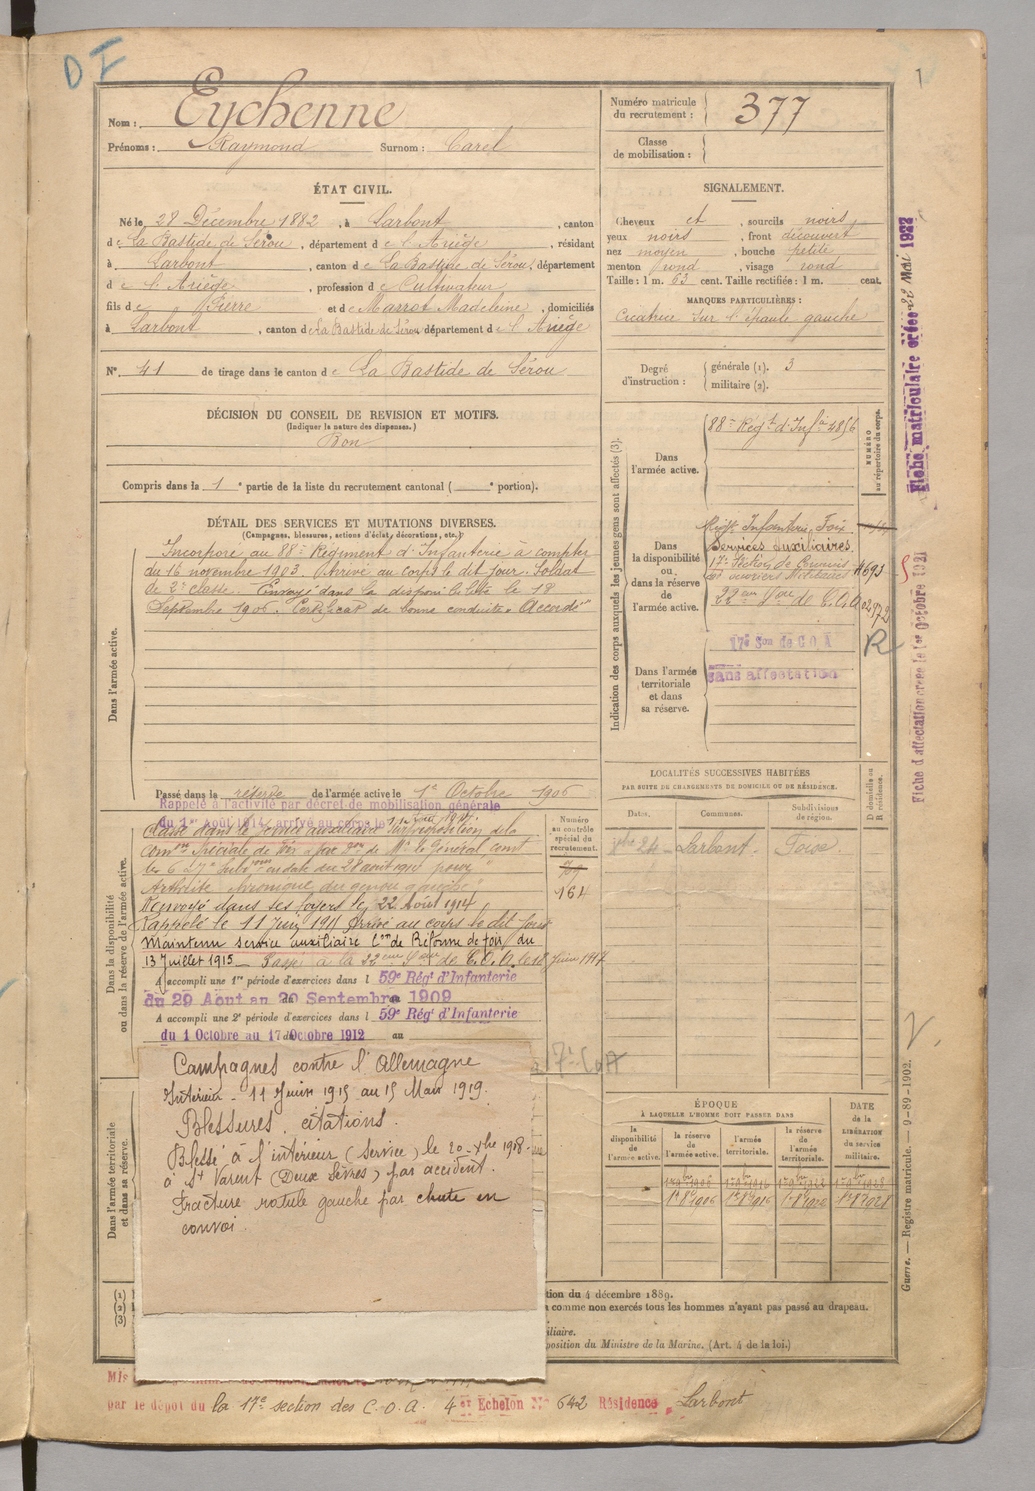 D I
1
Nom : Eychenne
Prénoms : Raymond Surnom : Carel
Numéro matricule du recrutement : 377
Classe de mobilisation :
ÉTAT CIVIL.
Né le 28 Décembre 1882, à Larbont, canton
de La Bastide de Sérou, département de l'Ariège, résidant
à Larbont, canton de La Bastide de Sérou, département
de l'Ariège, profession de Cultivateur
fils de Pierre et de Marrot Madeleine, domiciliés
à Larbont, canton de La Bastide de Sérou département de l'Ariège
N° 41 de tirage dans le canton de La Bastide de Sérou
DÉCISION DU CONSEIL DE REVISION ET MOTIFS.
(Indiquer la nature des dispenses.)
Bon
Compris dans la 1e partie de la liste du recrutement cantonal ( e portion).
DÉTAIL DES SERVICES ET MUTATIONS DIVERSES.
(Campagnes, blessures, actions d'éclat, décorations, etc.)
Dans l'armée active.
Incorporé au 88e Régiment d'Infanterie à compter
du 16 novembre 1903. Arrivé au corps le dit jour. Soldat
de 2e classe. Envoyé dans la disponibilité le 18
Septembre 1906. Certificat de bonne conduite "Accordé"
Passé dans la réserve de l'armée active le 1er Octobre 1906
Dans la disponibilité ou dans la réserve de l'armée active.
Rappelé à l'activité par décret de mobilisation générale
du 1er Août 1914 arrivé au corps le
Classé dans le service auxiliaire Sur proposition de la
Comon Spéciale de Foix par don de Mr le Général comt
en date du 28 août 1914 pour
Arthrite chronique du genou gauche"
Renvoyé dans ses foyers le 22 Août 1914
Rappelé le 11 Juin 1915 Arrivé au corps le dit jour
Maintenu service auxiliaire Con de Réforme de Foix du
13 Juillet 1915 Passé à la 22eme Son de C.O.A. le 18 Juin 1917
A accompli une 1re période d'exercices dans l 59e Régt d'Infanterie
du 29 Aout au 20 Septembre 1909
A accompli une 2e période d'exercices dans l 59e Régt d'Infanterie
du 1 Octobre au 17 Octobre 1912 au
Numéro au contrôle spécial du recrutement.
79
164
Dans l'armée territoriale et dans sa réserve.
Campagnes contre l'Allemagne
Intérieur - 11 Juin 1915 au 15 Mars 1919.
Blessures, citations.
Blessé à l'intérieur (service) le 20 Xbre 1918
à St Varent (Deux Sèvres) par accident.
Fracture rotule gauche par chute en
convoi.
(1)
(2)
(3)
tion du 4 décembre 1889.
comme non exercés tous les hommes n'ayant pas passé au drapeau.
iliaire.
position du Ministre de la Marine. (Art. 4 de la loi.)
SIGNALEMENT.
Cheveux et, sourcils noirs
yeux noirs, front découvert
nez moyen, bouche petite
menton rond, visage rond
Taille : 1 m. 63 cent. Taille rectifiée : 1 m. cent.
MARQUES PARTICULIÈRES :
Cicatrice sur l'épaule gauche
Degré d'instruction :
générale (1). 3
militaire (2).
Indication des corps auxquels les jeunes gens sont affectés (3).
NUMÉRO au répertoire du corps.
Dans l'armée active.
88e Régt d'Infie 4856
Dans la disponibilité ou dans la réserve de l'armée active.
Régt Infanterie Foix
Services auxiliaires.
17e Section de Commis
et ouvriers Militaires 4693
22eme Son de C.O.A 02572
17e Son de C O A
R
Dans l'armée territoriale et dans sa réserve.
sans affectation
LOCALITÉS SUCCESSIVES HABITÉES
PAR SUITE DE CHANGEMENTS DE DOMICILE OU DE RÉSIDENCE.
Dates. Communes. Subdivisions de région. D domicile ou R résidence.
24 Larbont Foix
ÉPOQUE
À LAQUELLE L'HOMME DOIT PASSER DANS
la disponibilité de l'armée active.
la réserve de l'armée active.
l'armée territoriale.
la réserve de l'armée territoriale.
DATE de la LIBÉRATION du service militaire.
Fiche matriculaire créée 22 Mai 1922
Fiche d'affectation créée le 1er Octobre 1921
Guerre. — Registre matricule. — 9-89-1902.
Mis
par le dépôt du la 17e section des C.O.A. 4 Echelon N° 642 Résidence Larbont